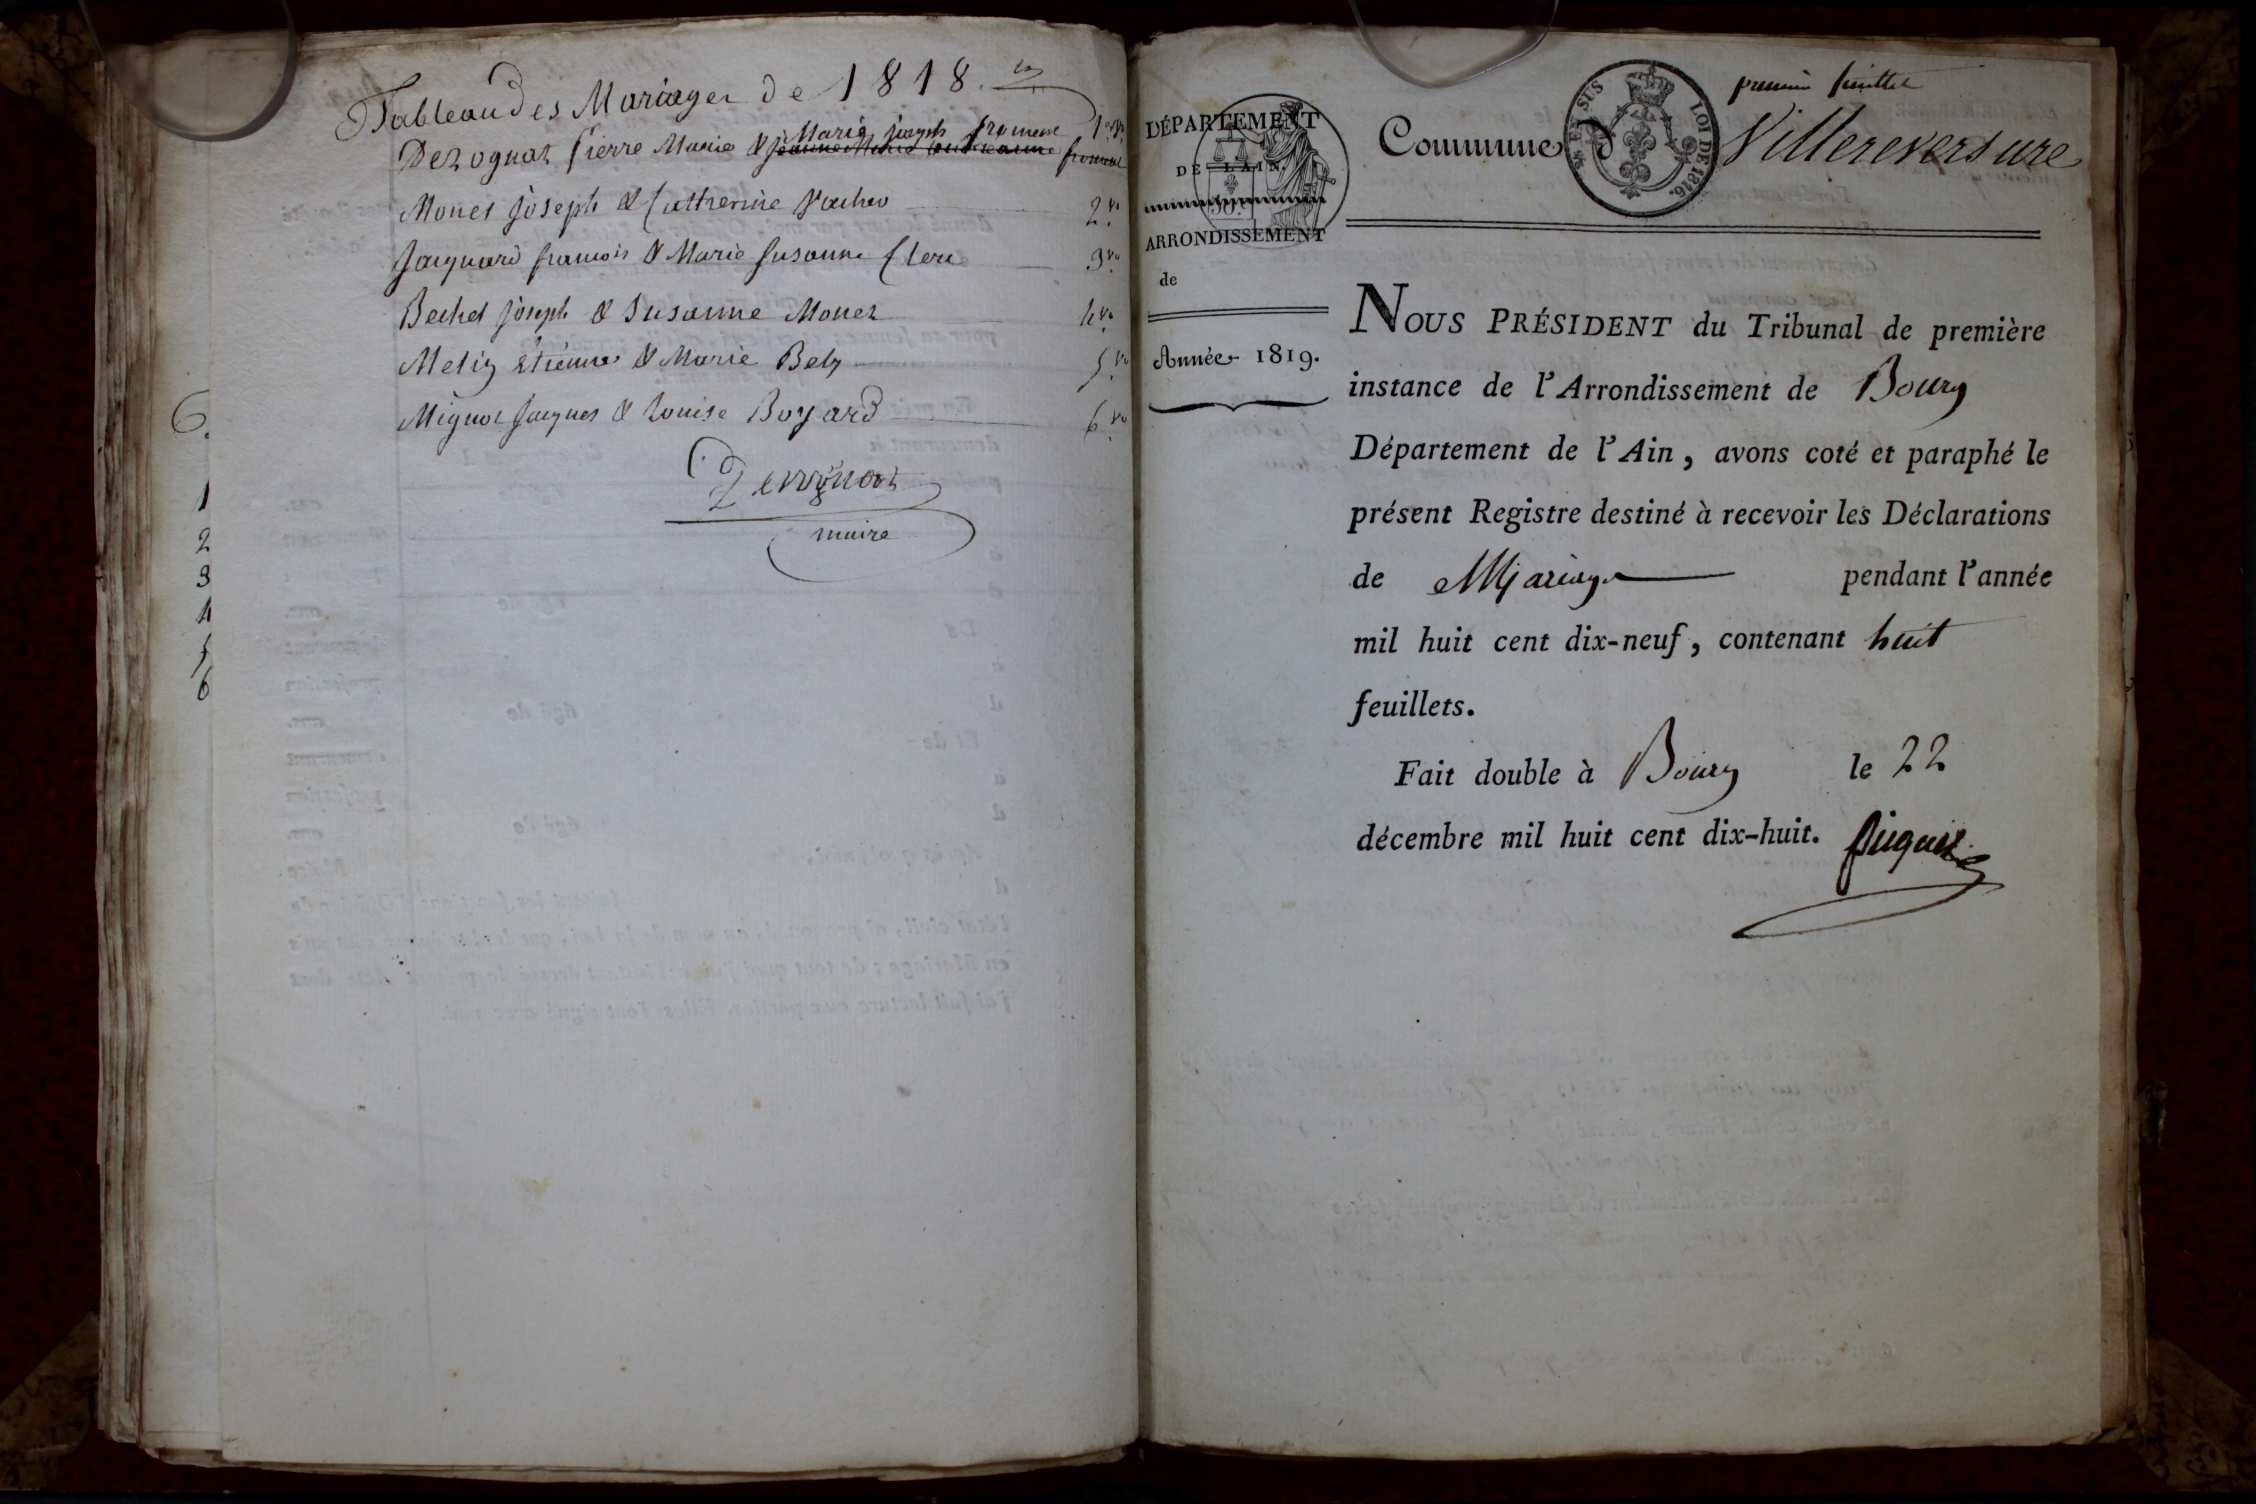 Tableau des Mariages de 1818.
Marie joseph froment
Dezognat Pierre Marie & froment 1. vo
Monet Joseph & Catherine Vacher 2. vo
Jacquard francois & Marie Susanne Clerc 3. vo
Bechet Joseph & Susanne Monet 4. vo
Metiy Etienne & Marie Bely 5. vo
Mignot Jacques & Louise Boyard 6. vo
Derognat
maire
6.
1
2
3
4
5
6
premier feuillet
DÉPARTEMENT
DE L'AIN.
ARRONDISSEMENT
de
Année 1819.
Commune d
LOI DE 1816.
Villereversure
NOUS PRÉSIDENT du Tribunal de première
instance de l'Arrondissement de Bourg
Département de l'Ain, avons coté et paraphé le
présent Registre destiné à recevoir les Déclarations
de Mariage pendant l'année
mil huit cent dix-neuf, contenant huit
feuillets.
Fait double à Bourg le 22
décembre mil huit cent dix-huit. Piquet